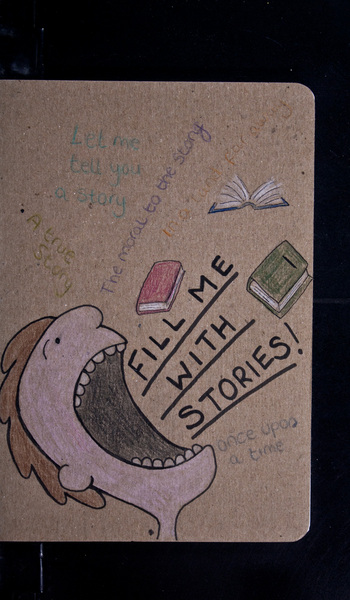 Let me
tell you
a story
The moral to the story
In a land far away
A true
story
FILL ME
WITH
STORIES!
once upon
a time